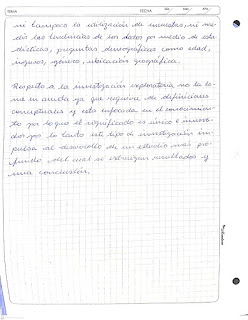 TEMA FECHA
ni tampoco la utilización de muestras, ni mi-
dió las tendencias de los datos por medio de esta-
dísticas, preguntas demográficas como edad,
ingreso, género, ubicación geográfica.
Respecto a la investigación exploratoria no la to-
ma en cuenta ya que requiere de definiciones
conceptuales y esta enfocada en el conocimien-
to por lo que el significado es único e innova-
dor por lo tanto este tipo de investigación im-
pulsa al desarrollo de un estudio más pro-
fundo del cual se extraigan resultados y
una conclusión.